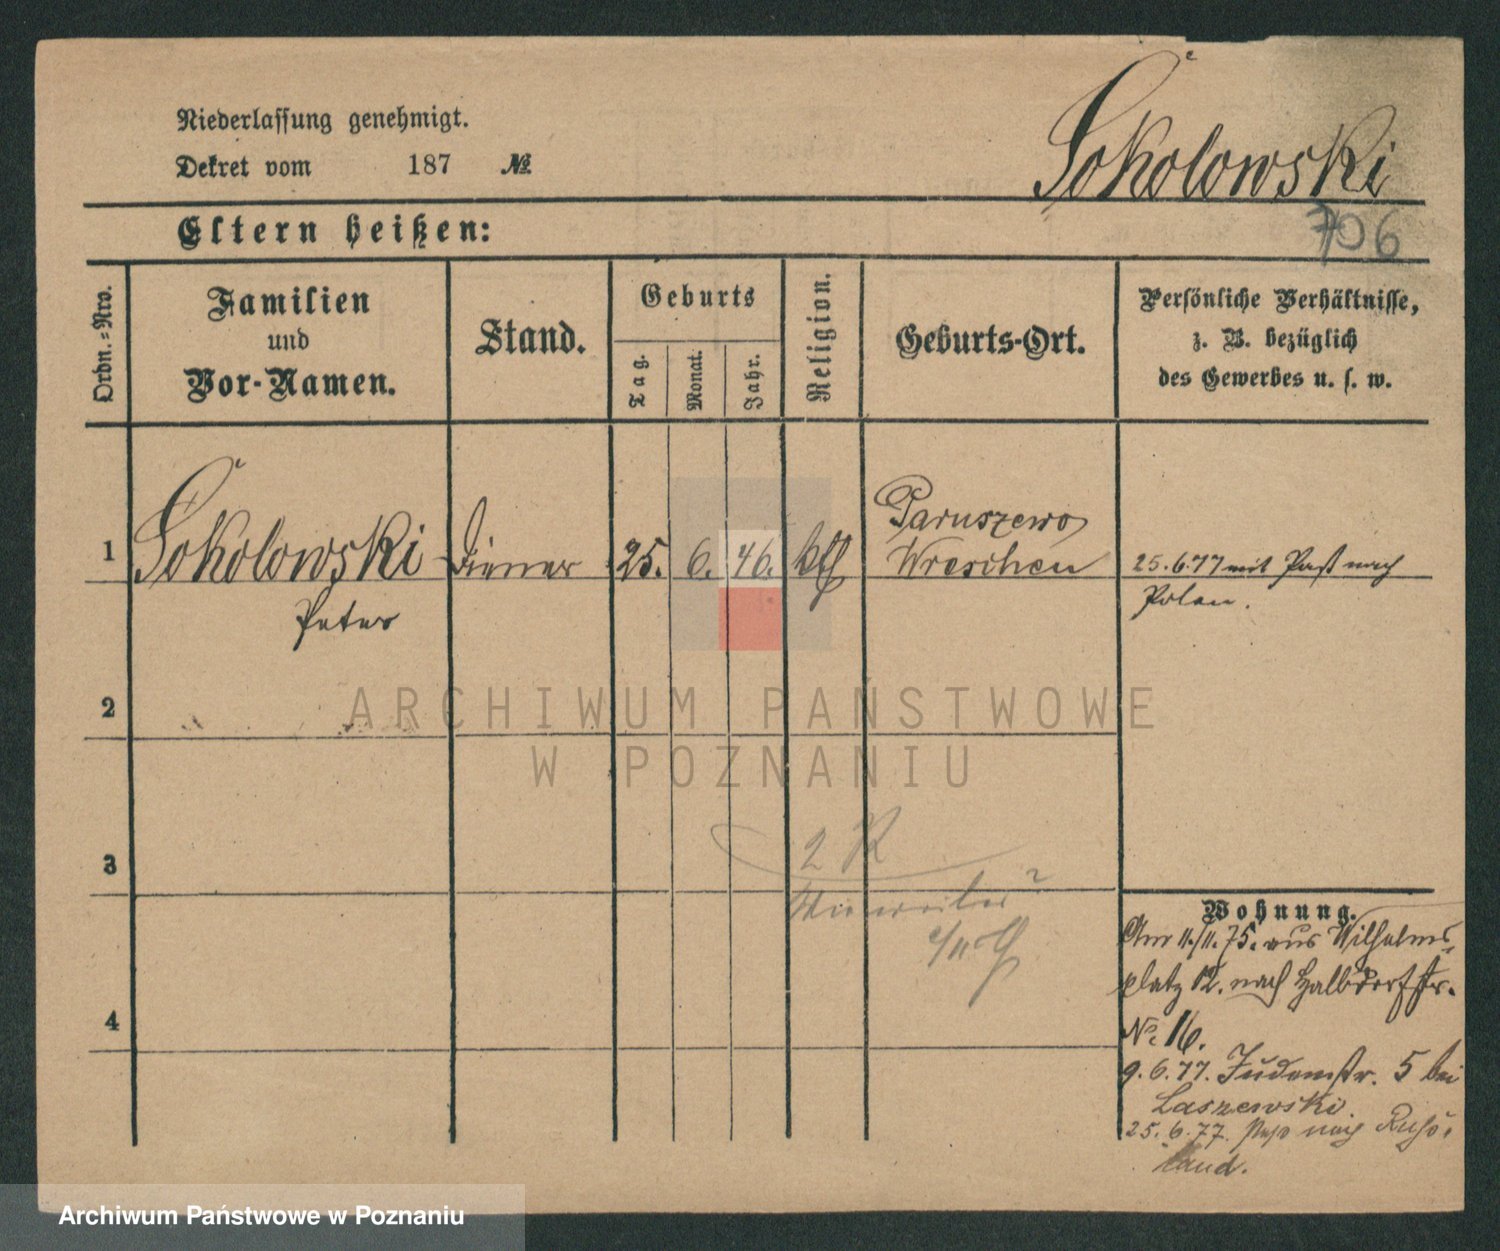 Niederlassung genehmigt.
Dekret vom 187 №
Sokolowski
706
Eltern heißen:
Ordn.-Nro.
Familien
und
Vor-Namen.
Stand.
Geburts
Tag.
Monat.
Jahr.
Religion.
Geburts-Ort.
Persönliche Verhältnisse,
z. B. bezüglich
des Gewerbes u. s. w.
1 Sokolowski Diener 25. 6. 46. kth Paruszewo
Wreschen
Peter
25.6.77 mit Paß nach
Polen.
2
ARCHIWUM PAŃSTWOWE
W POZNANIU
3
2 R
4
Wohnung.
Am 11./11. 75. aus Wilhelms-
platz 12. nach Halbdorfstr.
№ 16.
9.6.77. Judenstr. 5 bei
Laszewski.
25.6.77. Paß nach Russ-
land.
Archiwum Państwowe w Poznaniu